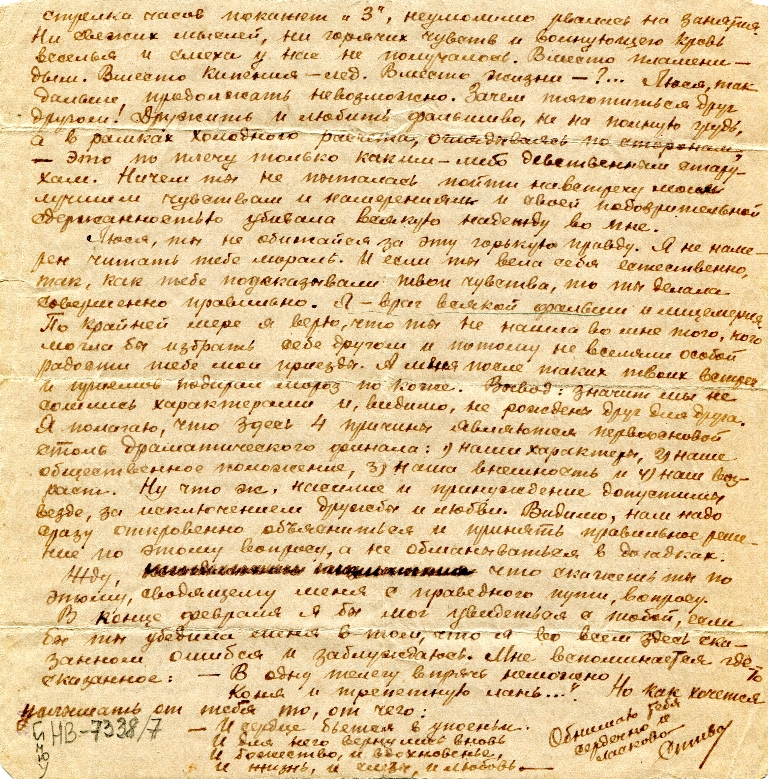 стрелка часов покажет "3", неумолимо рвалась на занятия.
Ни свежих мыслей, ни горячих чувств и волнующего кровь
веселья и смеха у нас не получалось. Вместо пламени –
дым. Вместо кипения – лед. Вместо жизни – ?... Люся, так
дальше продолжать невозможно. Зачем тяготиться друг
другом! Дружить и любить фальшиво, не на полную грудь,
а в рамках холодного расчета, оглядываясь по сторонам
– это по плечу только каким-либо девственным стару-
хам. Ничем ты не пыталась пойти навстречу моим
лучшим чувствам и намерениям и своей подозрительной
сдержанностью убивала всякую надежду во мне.
Люся, ты не обижайся за эту горькую правду. Я не наме-
рен читать тебе мораль. И если ты вела себя естественно,
так, как тебе подсказывали твои чувства, то ты делала
совершенно правильно. Я – враг всякой фальши и лицемерия.
По крайней мере я верю, что ты не нашла во мне того, кого
могла бы избрать себе другом и потому не вселяли особой
радости тебе мои приезды. А меня после таких твоих встреч
и приемов подирал мороз по коже. Вывод: значит мы не
сошлись характерами и, видимо, не рождены друг для друга.
Я полагаю, что здесь 4 причины являются первоосновой
столь драматического финала: 1) наши характеры, 2) наше
общественное положение, 3) наша внешность и 4) наш воз-
раст. Ну что ж, насилие и принуждение допустимы
везде, за исключением дружбы и любви. Видимо, нам надо
сразу откровенно объясниться и принять правильное реше-
ние по этому вопросу, а не обманываться в догадках.
Жду, что скажешь ты по
этому, сводящему меня с праведного пути, вопросу.
В конце февраля я бы мог увидеться с тобой, если
бы ты убедила меня в том, что я во всем здесь ска-
занном ошибся и заблуждаюсь. Мне вспоминается где-то
сказанное: – В одну телегу впрячь неможно
Коня и трепетную лань..." Но как хочется
услышать от тебя то, от чего:
– И сердце бьется в упоеньи.
И для него вернулись вновь
И божество, и вдохновенье,
И жизнь, и слезы, и любовь. –
Обнимаю тебя
сердечно и
ласково
НВ-7338/7